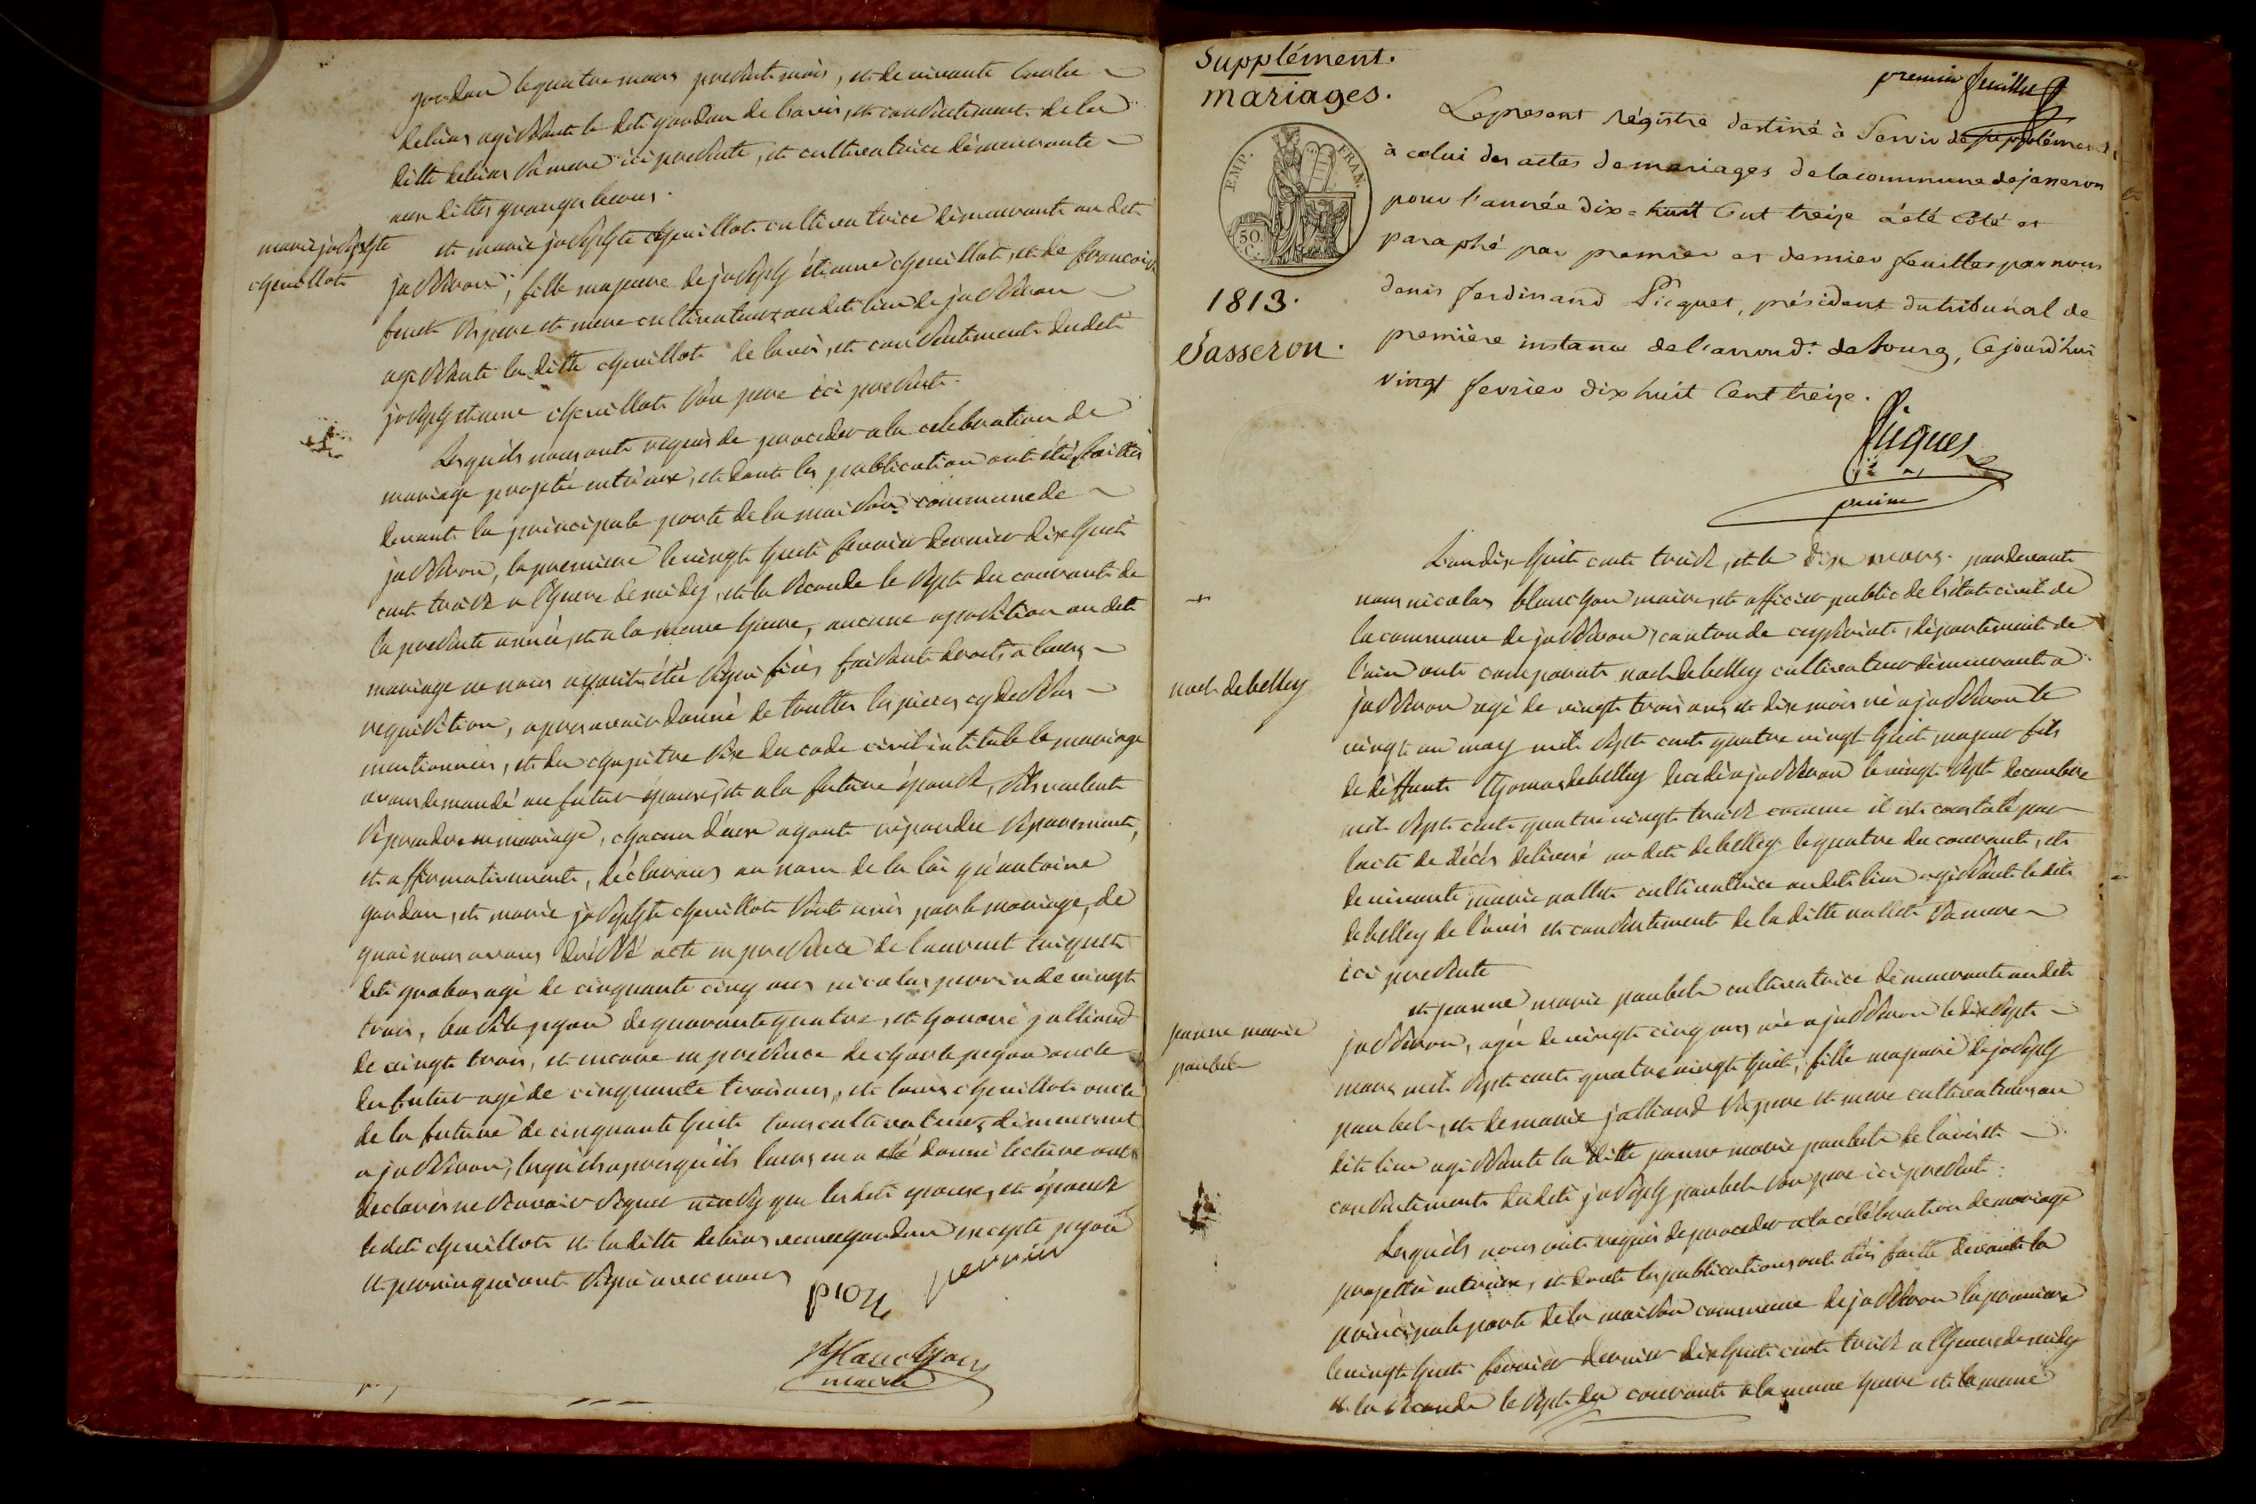 gordon le quatre mars present mois, et de vivante
debias agissant le dit gordon de l'avis, et consentement de la
ditte debias sa mere ici presente, et cultivatrice demeurante
aux dittes granges
marie josephte
chevillot
et marie josephte chevillot cultivatrice demeurante au dit
jasseron, fille majeure de joseph étienne chevillot, et de francoise
ses pere et mere cultivateurs au dit lieu de jasseron
agissante la ditte chevillot de l'avis, et consentement du dit
joseph etienne chevillot son pere ici present.
Lesquels nous ont requis de proceder a la celebration de
mariage projetté entr'eux, et dont les publication ont étés faittes
devant la principale porte de la maison commune de
jasseron, la premiere le vingt huit fevrier dernier dix huit
cent treize a l'heure de midy, et la seconde le sept du courant de
la presente année, et a la meme heure, aucune opposition au dit
mariage ne nous ayant été signifiés, faisant droit a leurs
requisition, apres avoir donné de touttes les pieces cy dessus
mentionnées, et du chapitre six du code civil intitulé le mariage
avons demandé au futur époux, et a la future épouse, s'ils veulent
se prendre en mariage, chacun d'eux ayant répondu séparement,
et affirmativement, déclarons au nom de la loi qu'antoine
gordon, et marie josephte chevillot sont unis par le mariage, de
quoi nous avons dressé acte en presence de laurent
dit grobas agé de cinquante cinq ans nicolas perrin de vingt
trois, pegon de quarante quatre, et honoré jalliard
de vingt trois, et encore en presence de charle pegon oncle
du futur agé de cinquante trois ans, et louis chevillot oncle
de la future de cinquante huit tous cultivateurs demeurant
a jasseron, lesquels apres qu'ils leurs en a été donné lecture ont
declarés ne savoir signer que les dits époux, et épouse
le dit chevillot et la ditte debias veuve gordon excepté pegon
et perrin qui ont signé avec nous
perrin
Blanchon
maire
Supplément.
mariages.
premier feuillet
EMP. FRAN.
50
C.
1813.
Jasseron.
Le present régistre destiné à servir de supplément
à celui des actes de mariages de la commune de jasseron
pour l'année dix-huit cent treize a été coté et
paraphé par premier et dernier feuilles par nous
denis ferdinand Picquet, président du tribunal de
première instance de l'arrond.t de bourg, ce jourd'hui
vingt fevrier dix huit cent treize.
Picquet
L'an dix huit cent treize, et le dix mars. pardevant
nous nicolas blanchon maire, et officier public de l'état civil de
la commune de jasseron, canton de ceyzeriat, département de
noel debelley
l'ain ont comparut noel debelley cultivateur demeurant a
jasseron agé de vingt trois ans et dix mois né a jasseron le
vingt un may mil sept cent quatre vingt huit majeur fils
de déffunt thomas debelley decedé a jasseron le vingt sept decembre
mil sept cent quatre vingt treize comme il est constaté par
l'acte de décés delivré au dit debelley le quatre du courant, et
de vivante marie vallet cultivatrice au dit lieu agissant le dit
debelley de l'avis et consentement de la ditte vallet sa mere
ici presente
jeanne marie
paubel
et jeanne marie paubel cultivatrice demeurante au dit
jasseron, agée de vingt cinq ans, née a jasseron le dix sept
mars mil sept cent quatre vingt huit, fille majeure de joseph
paubel, et de marie jalliard ses pere et mere cultivateurs au
dit lieu agissante la ditte jeanne marie paubel de l'avis et
consentement du dit joseph paubel son pere ici present.
Lesquels nous ont requis de proceder a la célébration de mariage
projetté entr'eux, et dont les publications ont étés faitte devant la
principale porte de la maison commune de jasseron la premiere
le vingt huit fevrier dernier dix huit cent treize a l'heure de midy
et la seconde le sept du courant a la meme heure et la meme